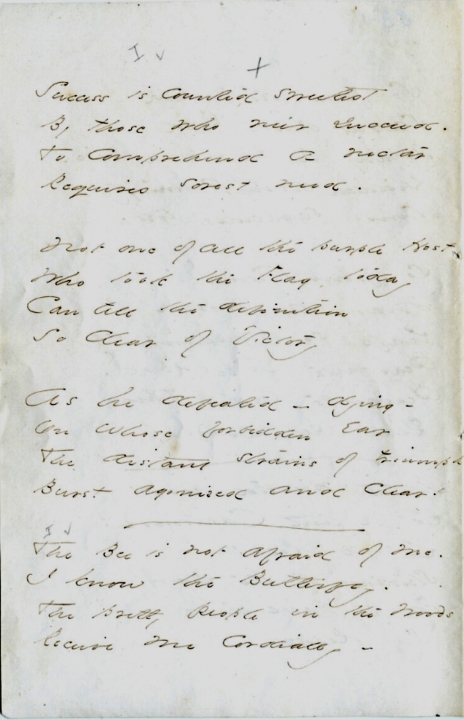 Success is counted sweetest
By those who ne'er succeed.
To Comprehend a nectar
Requires sorest need.
Not one of all the purple Host
Who took the Flag today
Can tell the definition
So clear of Victory
As he defeated – dying –
On whose forbidden Ear
The distant strains of triumph
Burst agonized and clear!
The Bee is not afraid of me.
I know the Butterfly.
The Pretty People in the Woods
Receive me Cordially –